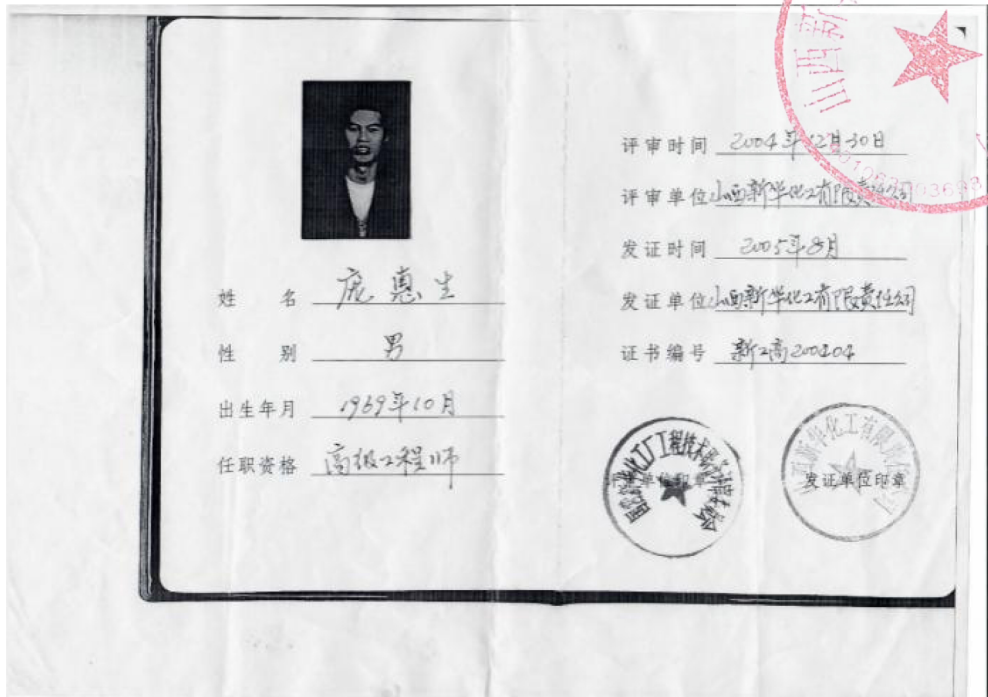 姓 名 庞惠生
性 别 男
出生年月 1969年10月
任职资格 高级工程师
评审时间 2004年12月30日
评审单位 山西新华化工有限责任公司
发证时间 2005年8月
发证单位 山西新华化工有限责任公司
证书编号 新工高200404
单位印章
发证单位印章
山西新